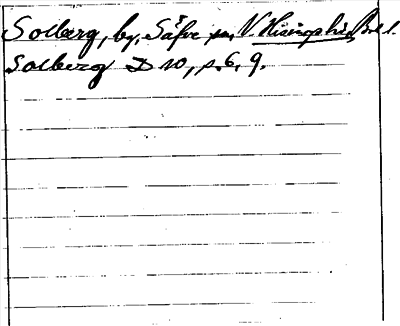 Solberg, by, Säfve sn, V. Hisings hd, Boh. l.
Solberg D 10, s. 6, 9.